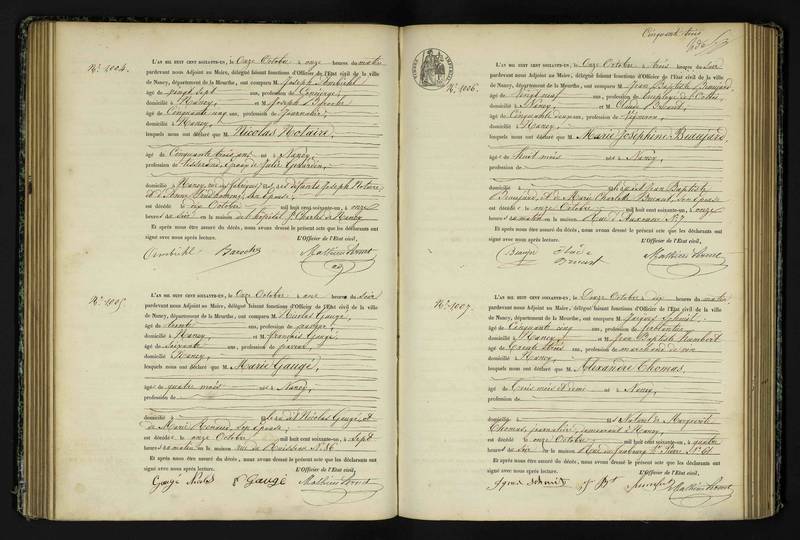 Nº 1004.
L'AN MIL HUIT CENT SOIXANTE-UN, le Onze Octobre à onze heures du matin
pardevant nous Adjoint au Maire, délégué faisant fonctions d'Officier de l'Etat civil de la ville
de Nancy, département de la Meurthe, ont comparu M. Joseph
âgé de vingt sept ans, profession de
domicilié à Nancy, et M. Joseph
âgé de Cinquante ans, profession de Journalier,
domicilié à Nancy,
lesquels nous ont déclaré que M. Nicolas Notaire,
âgé de Cinquante trois ans né à Nancy,
profession de Tisserand, époux de Julie
domicilié à Nancy, Joseph Notaire
et d'Anne son épouse,
est décédé le dix Octobre mil huit cent soixante-un, à onze
heures du soir en la maison de l'hôpital St Charles de Nancy
Et après nous être assuré du décès, nous avons dressé le présent acte que les déclarants ont
signé avec nous après lecture. L'Officier de l'Etat civil,
Mathieu
Nº 1005
L'AN MIL HUIT CENT SOIXANTE-UN, le Onze Octobre à une heure du soir
pardevant nous Adjoint au Maire, délégué faisant fonctions d'Officier de l'Etat civil de la ville
de Nancy, département de la Meurthe, ont comparu M. Nicolas Gaugé,
âgé de trente ans, profession de
domicilié à Nancy, et M. François Gaugé,
âgé de soixante ans, profession de
domicilié à Nancy,
lesquels nous ont déclaré que M. Marie Gaugé,
âgé de quatre mois né à Nancy,
profession de
domicilié à fille de Nicolas Gaugé, et
de Marie son épouse,
est décédé le onze Octobre mil huit cent soixante-un, à sept
heures du matin en la maison rue du Ruisseau Nº 16
Et après nous être assuré du décès, nous avons dressé le présent acte que les déclarants ont
signé avec nous après lecture. L'Officier de l'Etat civil,
Gaugé Nicolas Gaugé Mathieu
Cinquante trois
Nº 1006.
L'AN MIL HUIT CENT SOIXANTE-UN, le Onze Octobre à trois heures du soir
pardevant nous Adjoint au Maire, délégué faisant fonctions d'Officier de l'Etat civil de la ville
de Nancy, département de la Meurthe, ont comparu M. Jean Baptiste Beaujard,
âgé de vingt neuf ans, profession de Employé de l'Octroi,
domicilié à Nancy, et M. Claude
âgé de Cinquante deux ans, profession de
domicilié à Nancy,
lesquels nous ont déclaré que M. Marie Joséphine Beaujard,
âgé de huit mois né à Nancy,
profession de
domicilié à fille de Jean Baptiste
Beaujard, et de Marie Charlotte son épouse
est décédé le onze Octobre mil huit cent soixante-un, à onze
heures du matin en la maison Rue d'Auxonne Nº 7
Et après nous être assuré du décès, nous avons dressé le présent acte que les déclarants ont
signé avec nous après lecture. L'Officier de l'Etat civil,
Mathieu
Nº 1007.
L'AN MIL HUIT CENT SOIXANTE-UN, le Douze Octobre à dix heures du matin
pardevant nous Adjoint au Maire, délégué faisant fonctions d'Officier de l'Etat civil de la ville
de Nancy, département de la Meurthe, ont comparu M. Jacques
âgé de Cinquante cinq ans, profession de ferblantier
domicilié à Nancy, et M. Jean Baptiste Humbert
âgé de trente trois ans, profession de marchand de vin
domicilié à Nancy,
lesquels nous ont déclaré que M. Alexandre Thomas,
âgé de trois mois et demi né à Nancy,
profession de
domicilié à fils Naturel de Marguerite
Thomas, journalière, demeurant à Nancy,
est décédé le onze Octobre mil huit cent soixante-un, à quatre
heures du soir en la maison Rue du faubourg St Pierre Nº 61
Et après nous être assuré du décès, nous avons dressé le présent acte que les déclarants ont
signé avec nous après lecture. L'Officier de l'Etat civil,
Mathieu